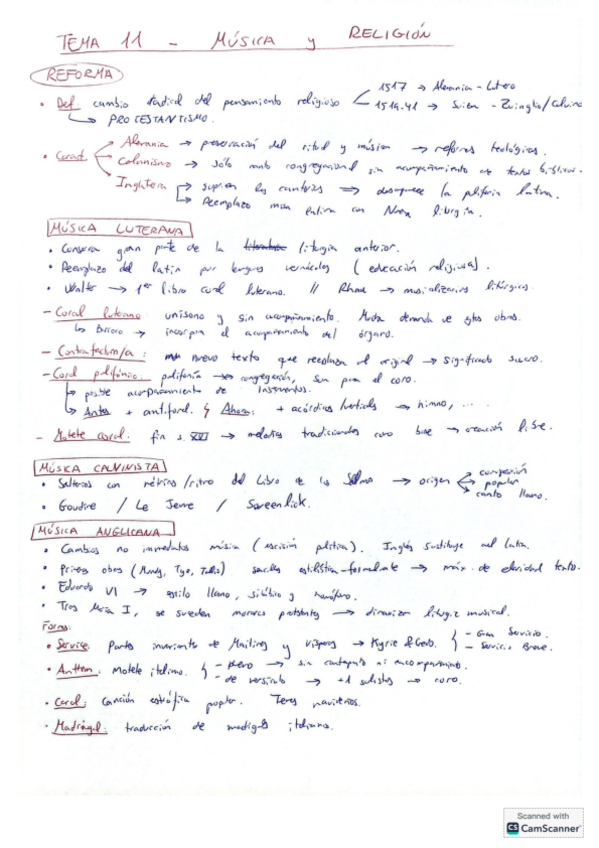 TEMA 11 - MÚSICA y RELIGIÓN
REFORMA
• Def: cambio radical del pensamiento religioso 1517 → Alemania - Lutero
PROTESTANTISMO. 1519-41 → Suiza - Zwinglio/Calvino
Alemania → preservación del ritual y música → reformas teológicas.
• Caract Calvinismo → sólo canto congregacional sin acompañamiento de textos bíblicos.
Inglaterra → suprimen los
Reemplazo misa latina con Nueva liturgia.
MÚSICA LUTERANA
• Conserva gran parte de la liturgia anterior.
• Reemplazo del latín por lenguas vernáculas (educación religiosa).
• Walter → 1er libro coral luterano. // Rhaw → musicalizaciones litúrgicas.
- Coral luterano: unísono y sin acompañamiento. Mucha demanda de estas obras.
Barroco → incorpora el acompañamiento del órgano.
- Contrafactum/a: nuevo texto que reemplaza al original → significado sacro.
- Coral polifónico: polifonía congregación, sino para el coro.
posible acompañamiento de instrumentos.
Antes + antifonal. Ahora: + acórdico/vertical → himno, ...
- Motete coral: fin s. XVI → melodías tradicionales como base → creación libre.
MÚSICA CALVINISTA
• Salterios con métrica/ritmo del Libro de los Salmos → origen composición
popular
canto llano.
• Goudime / Le Jeune / Sweelick.
MÚSICA ANGLICANA
• Cambios no inmediatos música (escisión política). Inglés sustituye al latín.
• Primeras obras (Mundy, Tye, Tallis) sencillas estilística-formalmente → máx. de claridad texto.
• Eduardo VI → estilo llano, silábico y homófono.
• Tras María I, se suceden monarcas protestantes → liturgia musical.
Formas:
• Service: Partes invariantes de Maitines y Vísperas → Kyrie & Credo. - Gran Servicio.
- Servicio Breve.
• Anthem: Motete italiano. - Pleno → sin ni acompañamiento.
- de versículo → +1 solistas → coro.
• Carol: Canción estrófica popular. Temas navideños.
• Madrigal: traducción de madrigales italianos.
Scanned with
CS CamScanner